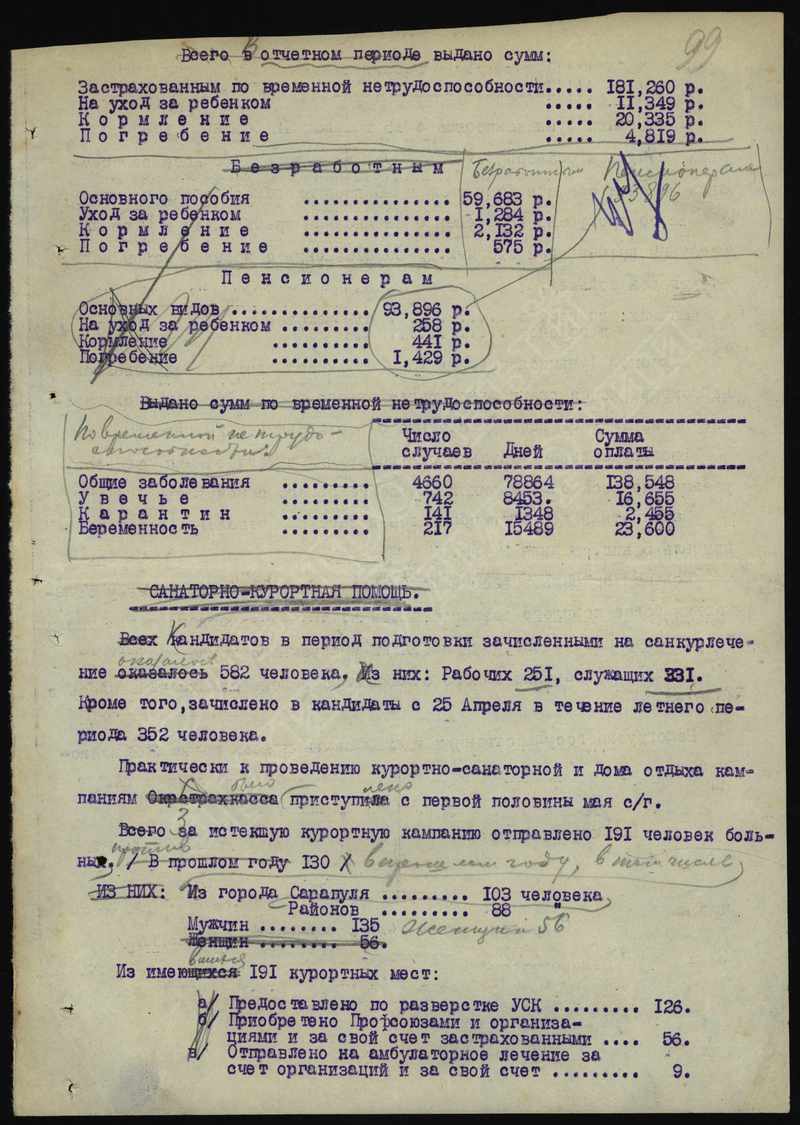 99
Всего в отчетном периоде выдано сумм:
Застрахованным по временной нетрудоспособности..... 181,260 р.
На уход за ребенком ..... 11,349 р.
Кормление ..... 20,335 р.
Погребение ..... 4,819 р.
Безработным Безработным Пенсионерам
93896
Основного пособия ............... 59,683 р.
Уход за ребенком ............... 1,284 р.
Кормление ............... 2,132 р.
Погребение ............... 575 р.
Пенсионерам
Основных видов .............. 93,896 р.
На уход за ребенком ......... 258 р.
Кормление .......... 441 р.
Погребение .......... 1,429 р.
Выдано сумм по временной нетрудоспособности:
По временной нетрудо-
способности:
Число случаев Дней Сумма оплаты
Общие заболевания ......... 4660 78864 138,548
Увечье ......... 742 8453. 16,655
Карантин ......... 141 1348 2,455
Беременность ......... 217 15489 23,600
САНАТОРНО-КУРОРТНАЯ ПОМОЩЬ.
Всех Кандидатов в период подготовки зачисленными на санкурлече-
ние оказалось 582 человека. Из них: Рабочих 251, служащих 331.
Кроме того,зачислено в кандидаты с 25 Апреля в течение летнего пе-
риода 352 человека.
Практически к проведению курортно-санаторной и дома отдыха кам-
было лено
паниям Окрстрахкасса приступила с первой половины мая с/г.
Всего За истекшую курортную кампанию отправлено 191 человек боль-
против
ных. / В прошлом году 130 / в прошлом году, в том числе
ИЗ НИХ: Из города Сарапуля ......... 103 человека
Районов ......... 88 "
Мужчин ........ 135 Женщин 56
Женщин ........ 56.
Из имеющихся 191 курортных мест:
а/ Предоставлено по разверстке УСК ......... 126.
б/ Приобретено Профсоюзами и организа-
циями и за свой счет застрахованными .... 56.
в/ Отправлено на амбулаторное лечение за
счет организаций и за свой счет ......... 9.